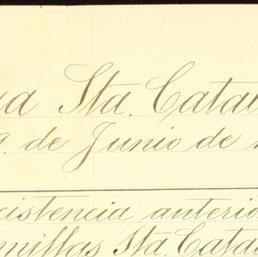 Sta. Catal
de Junio de
istencia anterio
millas Sta. Catal